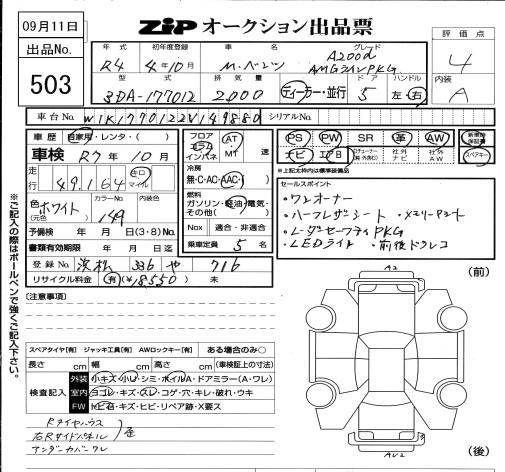 09月11日
ZIP オークション出品票
評価点
4
内装
A
出品No.
503
年式
初年度登録
車名
グレード
R4
4年10月
M.ベンツ
A200d
AMGラインPKG
型式
排気量
ドア
ハンドル
3DA-177012
2000
ディーラー・並行
5
左・右
車台No.
W1K1770122V149880
シリアルNo.
車歴
自家用・レンタ・( )
車検 R7年10月
走行
49,164
キロ
マイル
色
(元色)
ホワイト
カラーNo.
149
内装色
予備検 年 月 日(3・8)No.
書類有効期限 年 月 日迄
登録No.
浜松 336 や 716
リサイクル料金 有(¥18550) 未
フロア
コラム
インパネ
AT
MT
速
冷房
無・C・AC・AAC
燃料
ガソリン・軽油・電気・
その他( )
Nox
適合・非適合
乗車定員 5 名
PS
PW
SR
革
AW
ナビ
エアB
社外
ナビ
社外
AW
新車時
保証書
スペアキー
*上記太枠内は標準装備品
セールスポイント
・ワンオーナー
・ハーフレザーシート ・メモリーPシート
・レーダーセーフティPKG
・LEDライト ・前後ドラレコ
※ご記入の際はボールペンで強くご記入下さい。
[注意事項]
スペアタイヤ[有] ジャッキ工具[有] AWロックキー[有] ある場合のみ○
長さ cm 幅 cm 高さ cm (車検証上の寸法)
検査記入
外装
小キズ・小U・シミ・ホイルA・ドアミラー(A・ワレ)
室内
ヨゴレ・キズ・スレ・コゲ・穴・キレ・破れ・ウキ
FW
トビ石・キズ・ヒビ・リペア跡・X要ス
Rタイヤハウス
右Rサイドパネル
歪
アンダーカバーワレ
A2
(前)
AU2
(後)